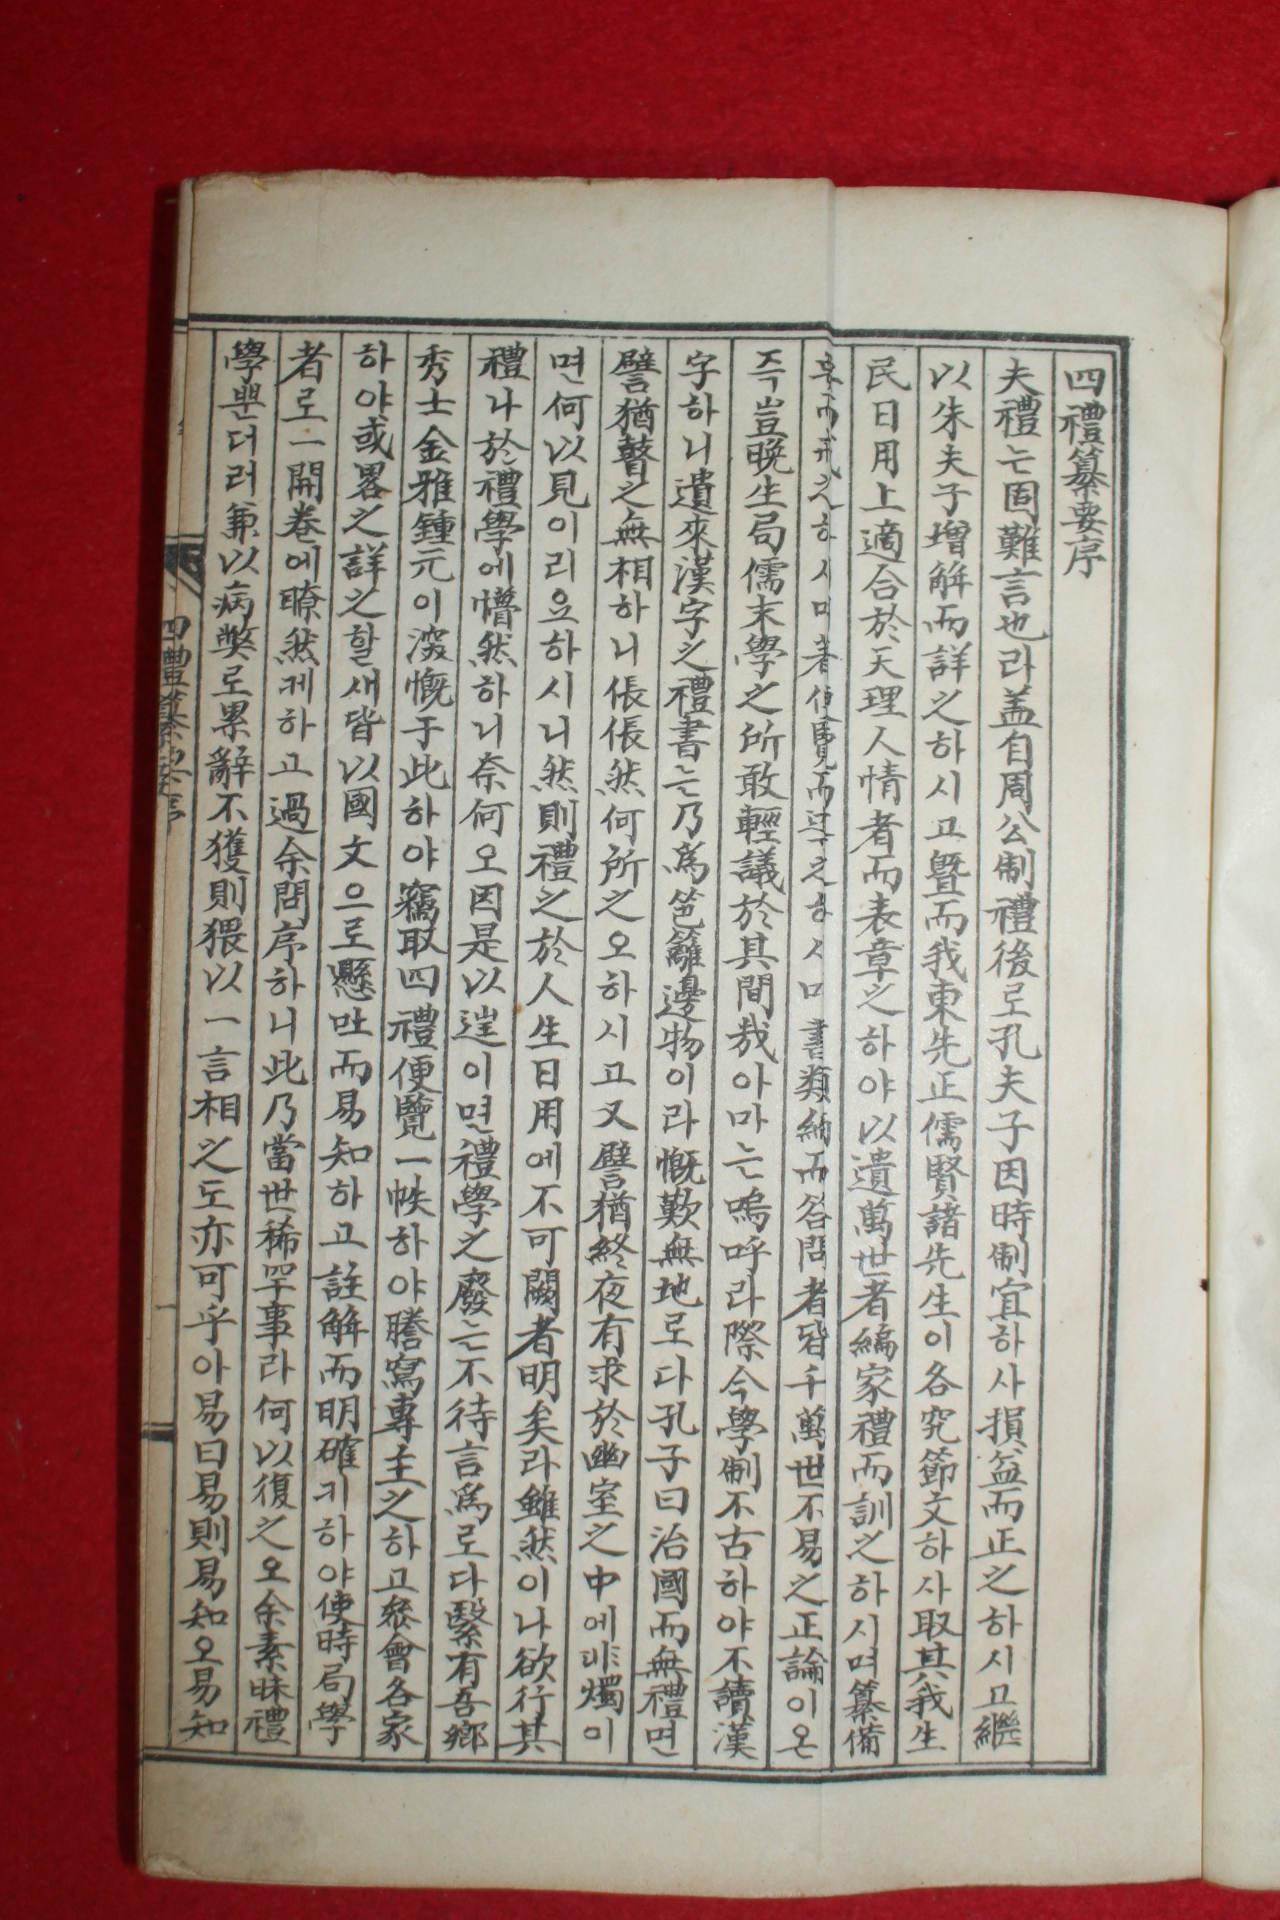 四禮纂要序
夫禮는固難言也라盖自周公制禮後로孔夫子因時制宜하사損益而正之하시고繼
以朱夫子增解而詳之하시고曁而我東先正儒賢諸先生이各究節文하사取其我生
民日用上適合於天理人情者而表章之하야以遺萬世者編家禮而訓之하시며纂備
而戒之하시며者便覽而 之하시며書類納而答問者皆千萬世不易之正論이온
즉豈晩生局儒末學之所敢輕議於其間哉아마는嗚呼라際今學制不古하야不讀漢
字하니遺來漢字之禮書는乃爲笆籬邊物이라慨歎無地로다孔子曰治國而無禮면
譬猶瞽之無相하니倀倀然何所之오하시고又譬猶終夜有求於幽室之中에非燭이
면何以見이리요하시니然則禮之於人生日用에不可闕者明矣라雖然이나欲行其
禮나於禮學에懵然하니奈何오因是以 이면禮學之廢는不待言爲로다繄有吾鄕
秀士金雅鍾元이深慨于此하야竊取四禮便覽一帙하야謄寫專主之하고叅會各家
하야或畧之詳之할새皆以國文으로懸吐而易知하고註解而明確키하야使時局學
者로一開卷에瞭然케하고過余問序하니此乃當世稀罕事라何以復之오余素昧禮
學뿐더러兼以病獘로累辭不獲則猥以一言相之도亦可乎아易曰易則易知오易知
四禮纂要序
一